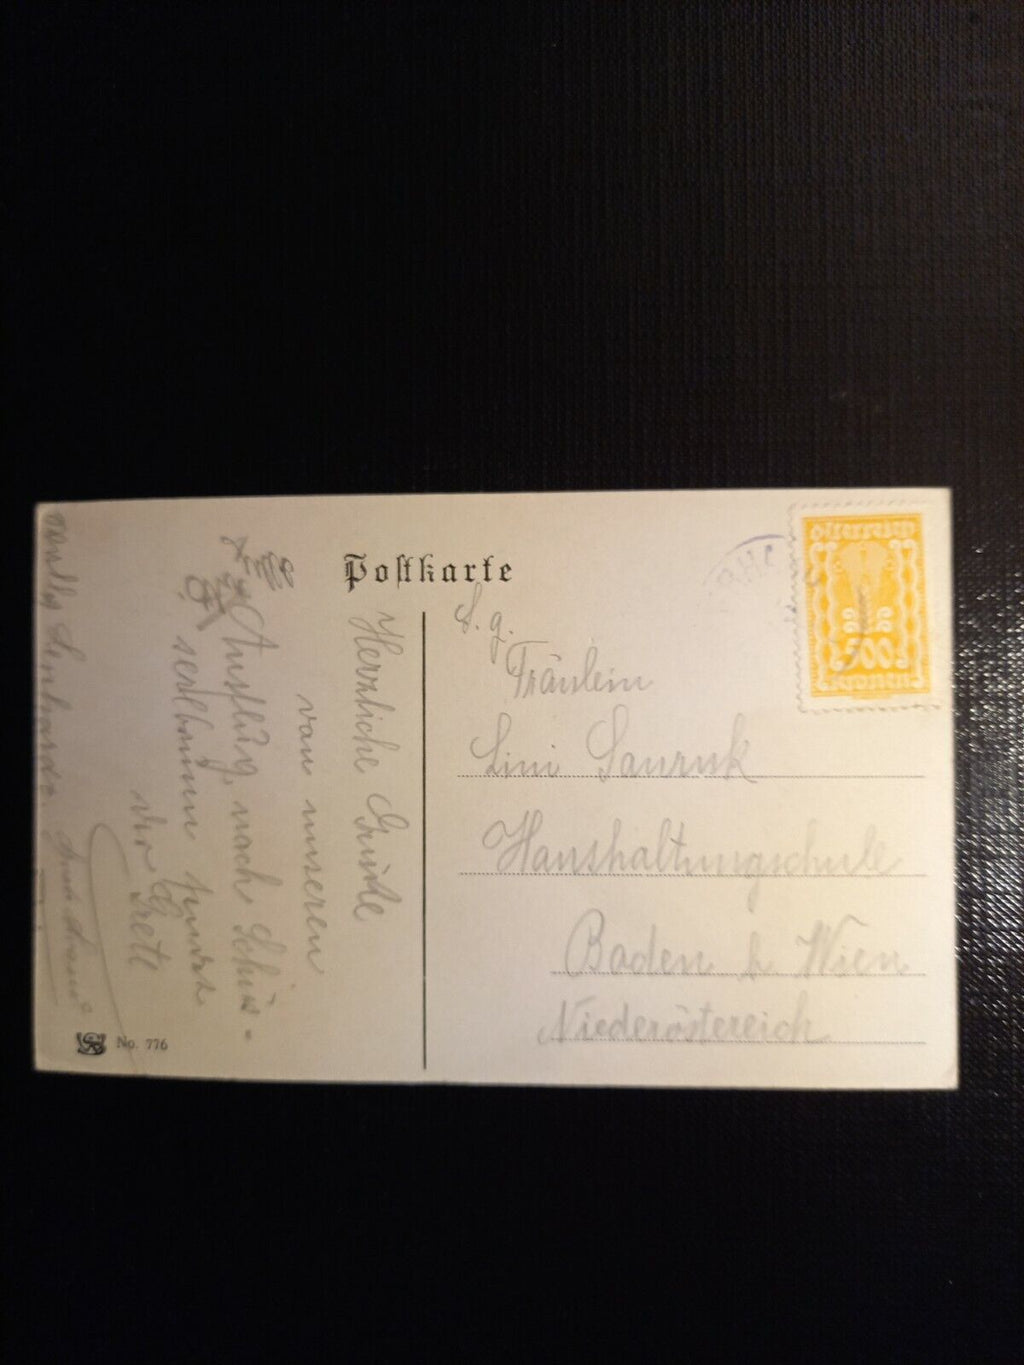 Postkarte
Herzliche Grüße
von unseren
Ausflug, nach Schüs-
serlbrunn
Ihre Grete
S. g.
Fräulein
Lini
Haushaltungschule
Baden b Wien
Niederösterreich
No. 776
Österreich
500
Kronen